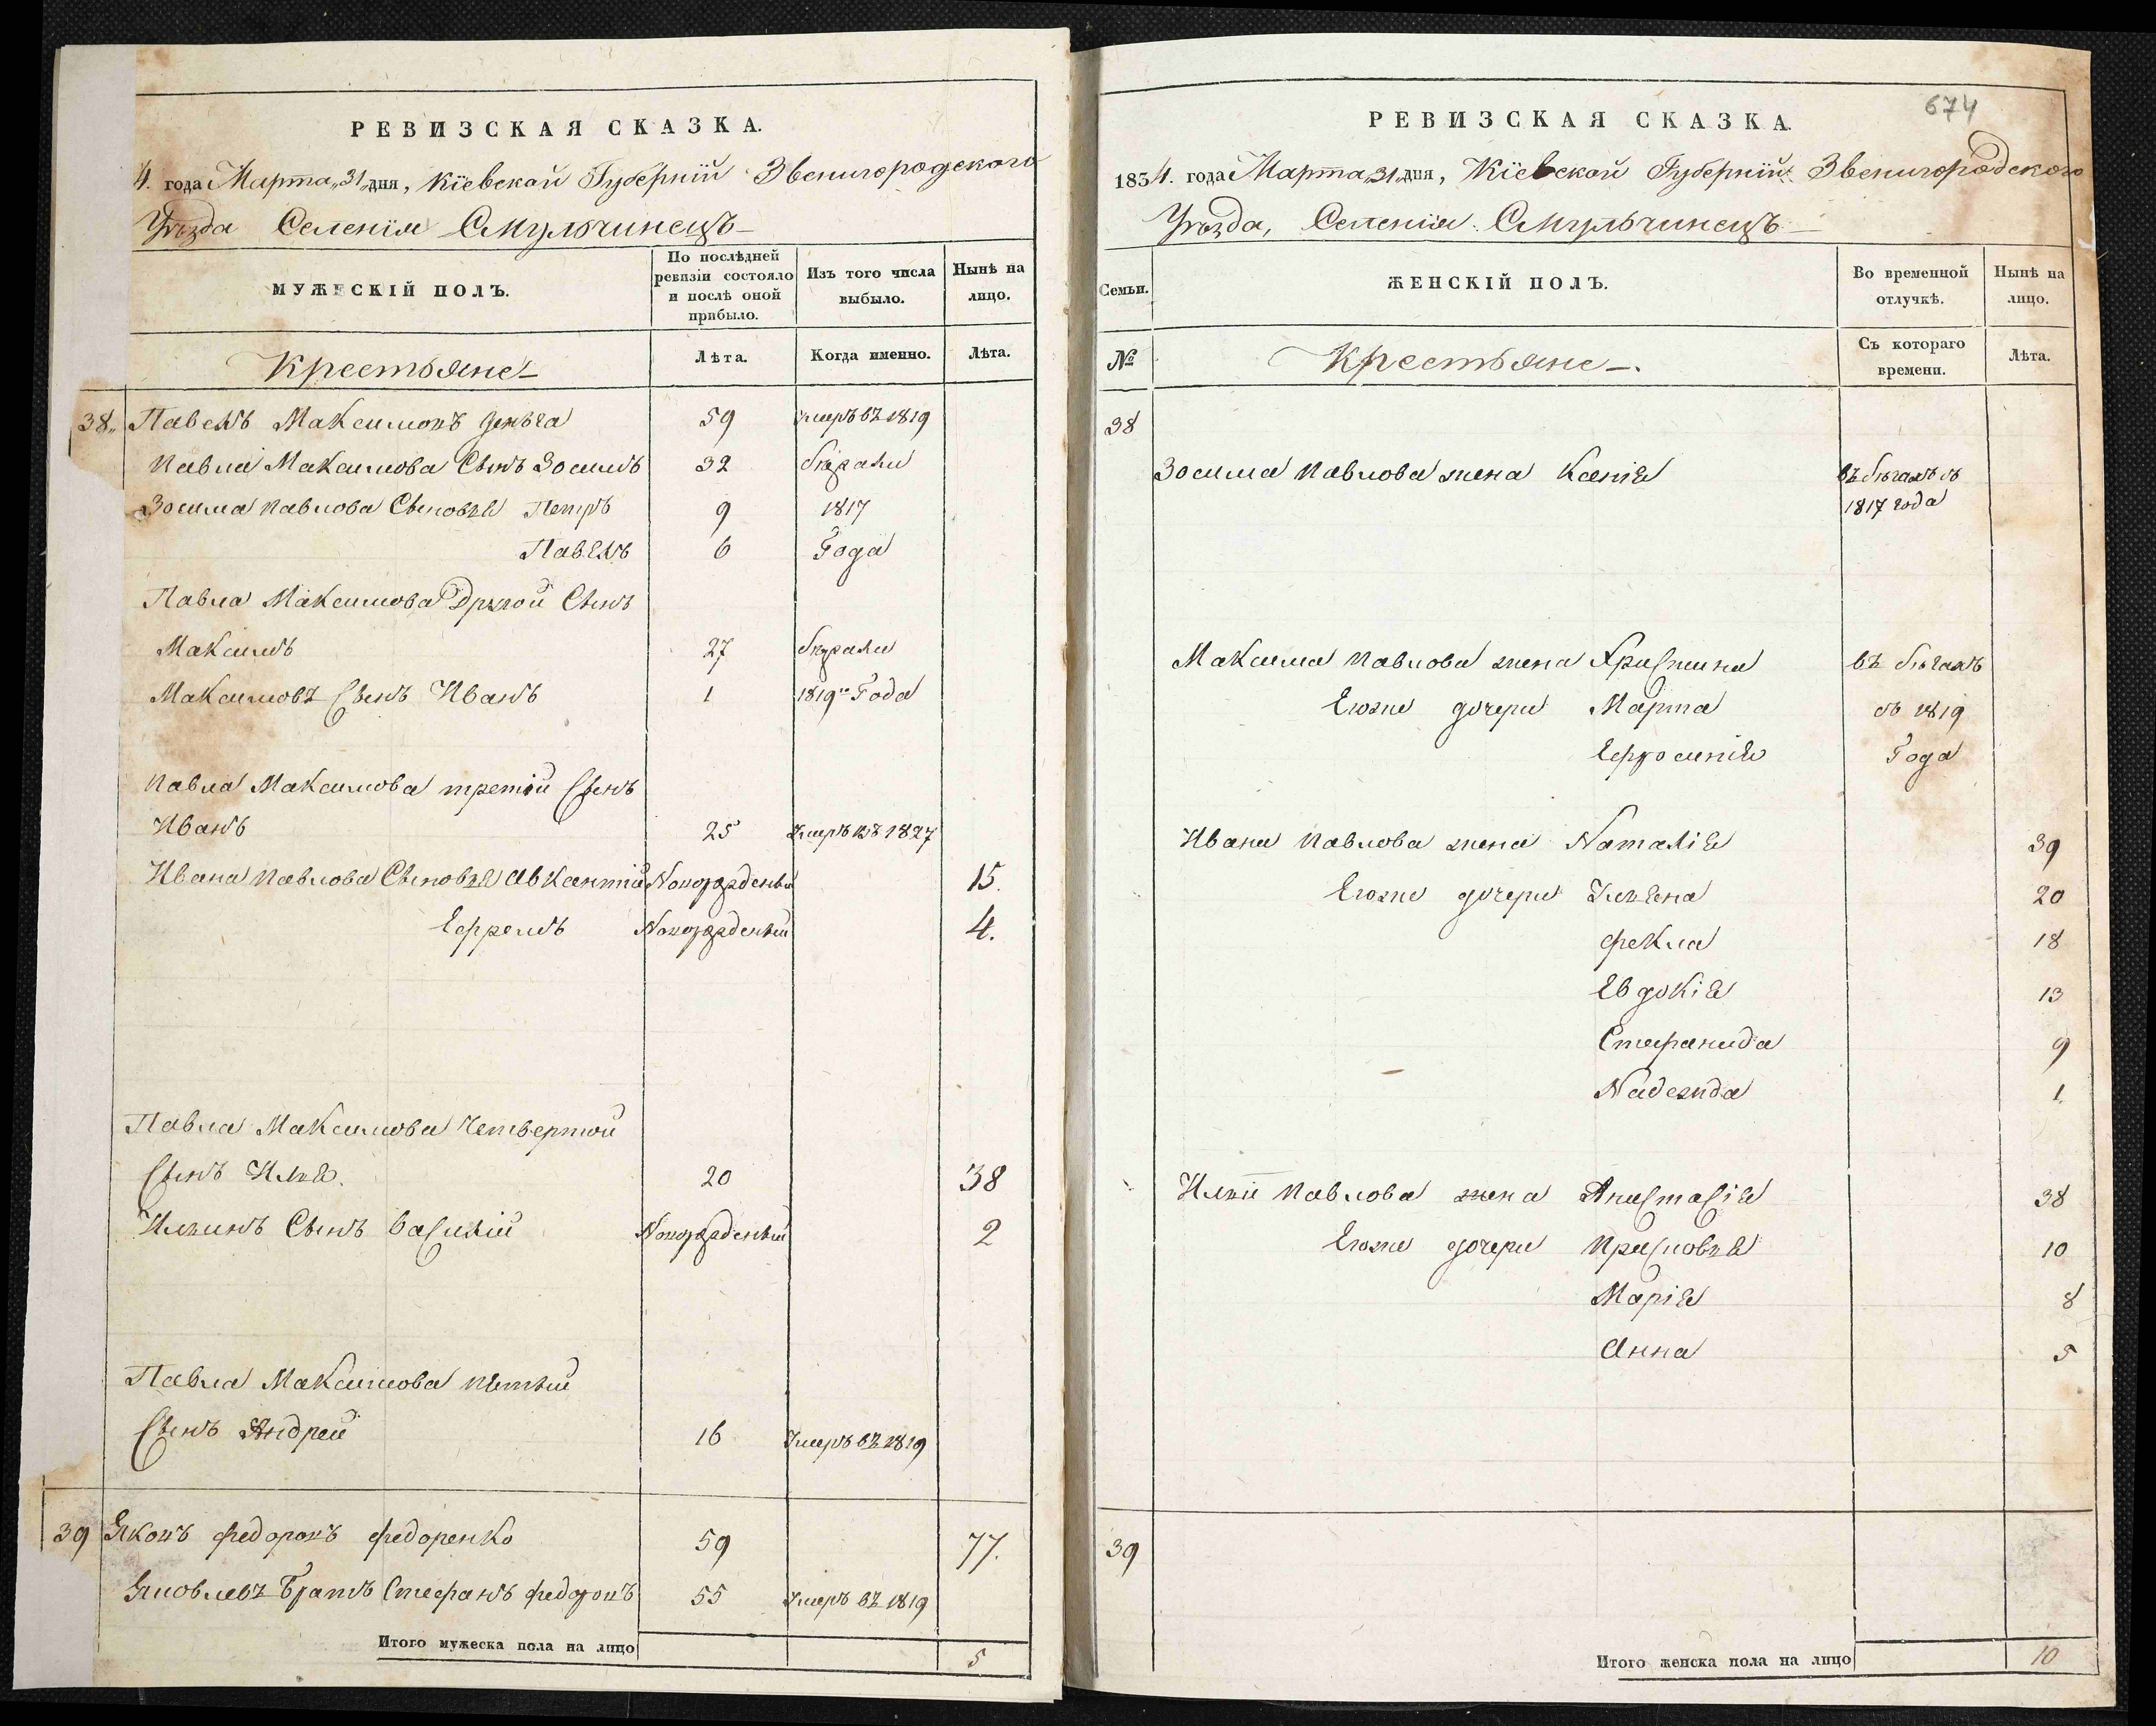 РЕВИЗСКАЯ СКАЗКА.
4. года Марта 31 дня, Кіевской Губерніи Звенигородского
Уѣзда Селенія Смульчинецъ
МУЖЕСКІЙ ПОЛЪ.
По послѣдней ревизіи состояло и послѣ оной прибыло.
Изъ того числа выбыло.
Нынѣ на лицо.
Крестьяне
Лѣта.
Когда именно.
Лѣта.
38. Павелъ Максимовъ 59 Умеръ въ 1819
Павла Максимова Сынъ Зосимъ 32 бѣжали
Зосима Павлова Сыновья Петръ 9 1817
Павелъ 6 Года
Павла Максимова Другой Сынъ
Максимъ 27 бѣжали
Максимовъ Сынъ Иванъ 1 1819 Года
Павла Максимова третій Сынъ
Иванъ 25 Умеръ въ 1827
Ивана Павлова Сыновья Авксентій Новорожденый 15.
Ефремъ Новорожденый 4.
Павла Максимова Четвертой
Сынъ Илья. 20 38
Ильинъ Сынъ Василій Новорожденый 2
Павла Максимова пятый
Сынъ Андрей 16 Умеръ въ 1819
39 Яковъ Федоровъ Федоренко 59 77.
Яковлевъ Братъ Стефанъ Федоровъ 55 Умеръ въ 1819
Итого мужеска пола на лицо 5
674
РЕВИЗСКАЯ СКАЗКА.
1834. года Марта 31 дня, Кіевской Губерніи Звенигородского
Уѣзда, Селенія Смульчинецъ
Семьи.
ЖЕНСКІЙ ПОЛЪ.
Во временной отлучкѣ.
Нынѣ на лицо.
№
Крестьяне.
Съ котораго времени.
Лѣта.
38
Зосима Павлова жена Ксенія въ бѣгахъ съ
1817 года
Максима Павлова жена Христина въ бѣгахъ
Егоже дочери Марта съ 1819
Ефросинія Года
Ивана Павлова жена Наталія 39
Егоже дочери Ульяна 20
Фекла 18
Евдокія 13
Стефанида 9
Надежда 1.
Ильи Павлова жена Анастасія 38
Егоже дочери 10
Марія 8
Анна 5
39
Итого женска пола на лицо 10